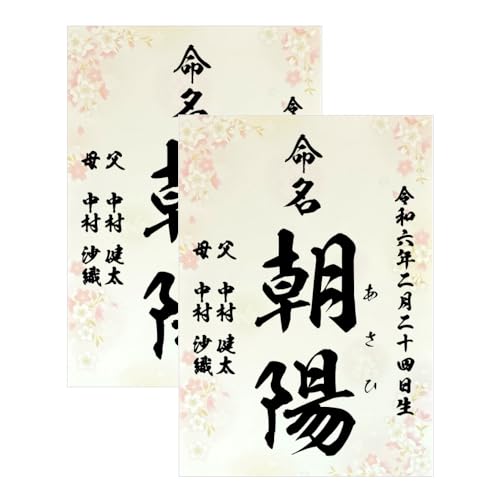 令和六年二月二十四日生
命名
朝陽
あさひ
父 中村 健太
母 中村 沙織
令
命名
朝
陽
父 中村 健太
母 中村 沙織